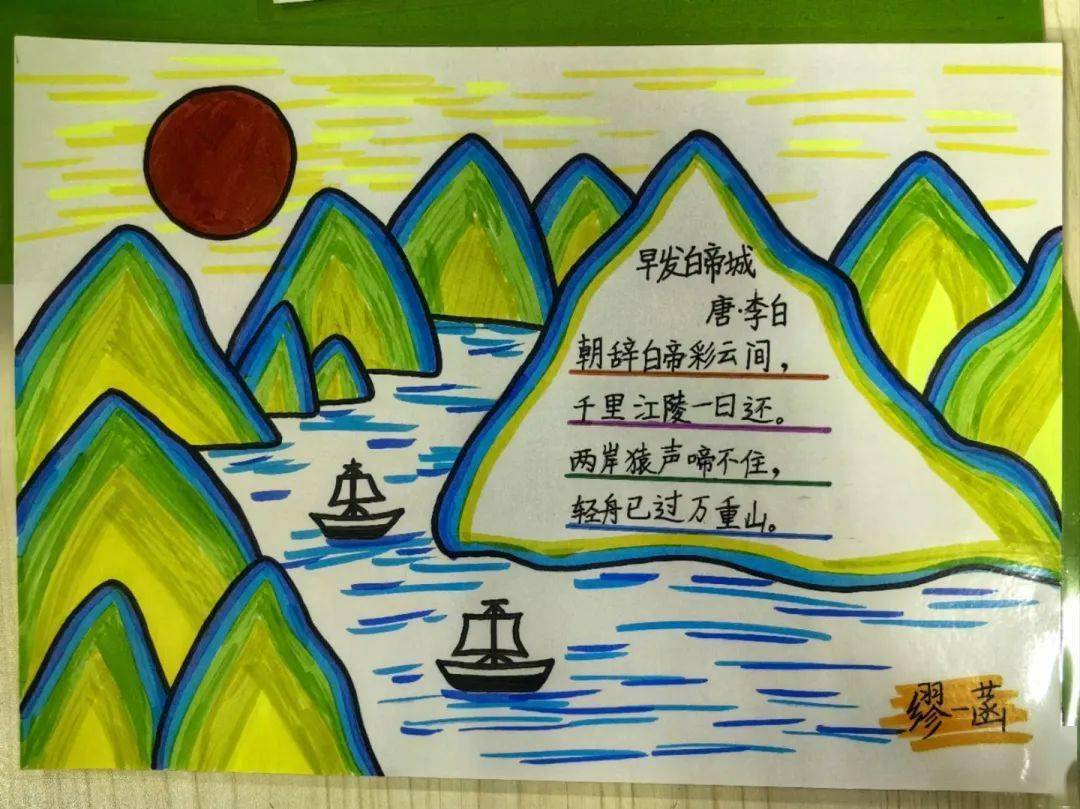 早发白帝城
唐·李白
朝辞白帝彩云间，
千里江陵一日还。
两岸猿声啼不住，
轻舟已过万重山。
缪一菡